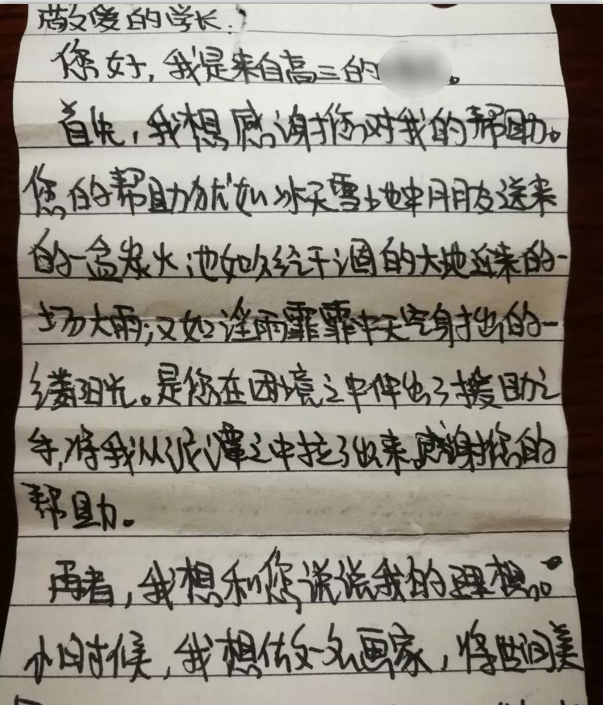 敬爱的学长:
您好,我是来自高三的
首先,我想感谢您对我的帮助。
您的帮助就如冰天雪地中朋友送来
的一盆炭火;也如久经干涸的大地迎来的一
场大雨;又如淫雨霏霏中天空射出的一
缕阳光。是您在困境之中伸出了援助之
手,将我从泥潭之中拉了出来,感谢您的
帮助。
再者,我想和您说说我的理想。
小时候,我想做一名画家,将世间美